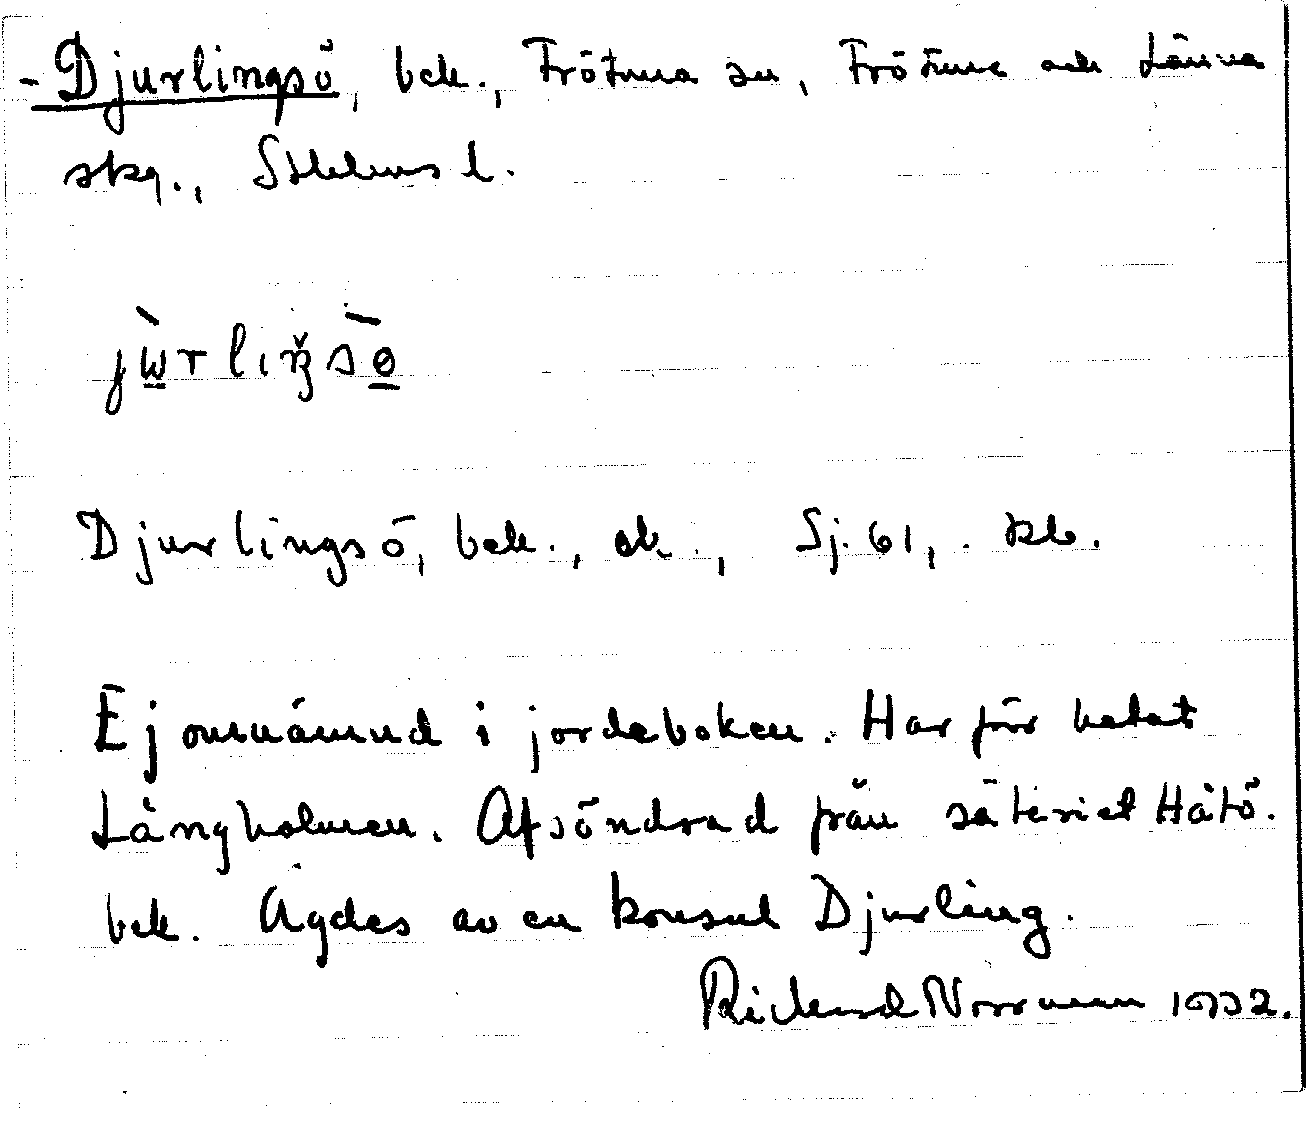 - Djurlingsö, bek., Frötuna sn, Frötuna och Länna
skg., Sthlms l.
Djurlingsö, bek., ek., Sj. 61, . kb.
Ej omnämnd i jordeboken. Har förr hetat
Långholmen. Afsöndrad från säteriet Håtö.
bek. Ägdes av en konsul Djurling.
Rickard Norrman 1932.